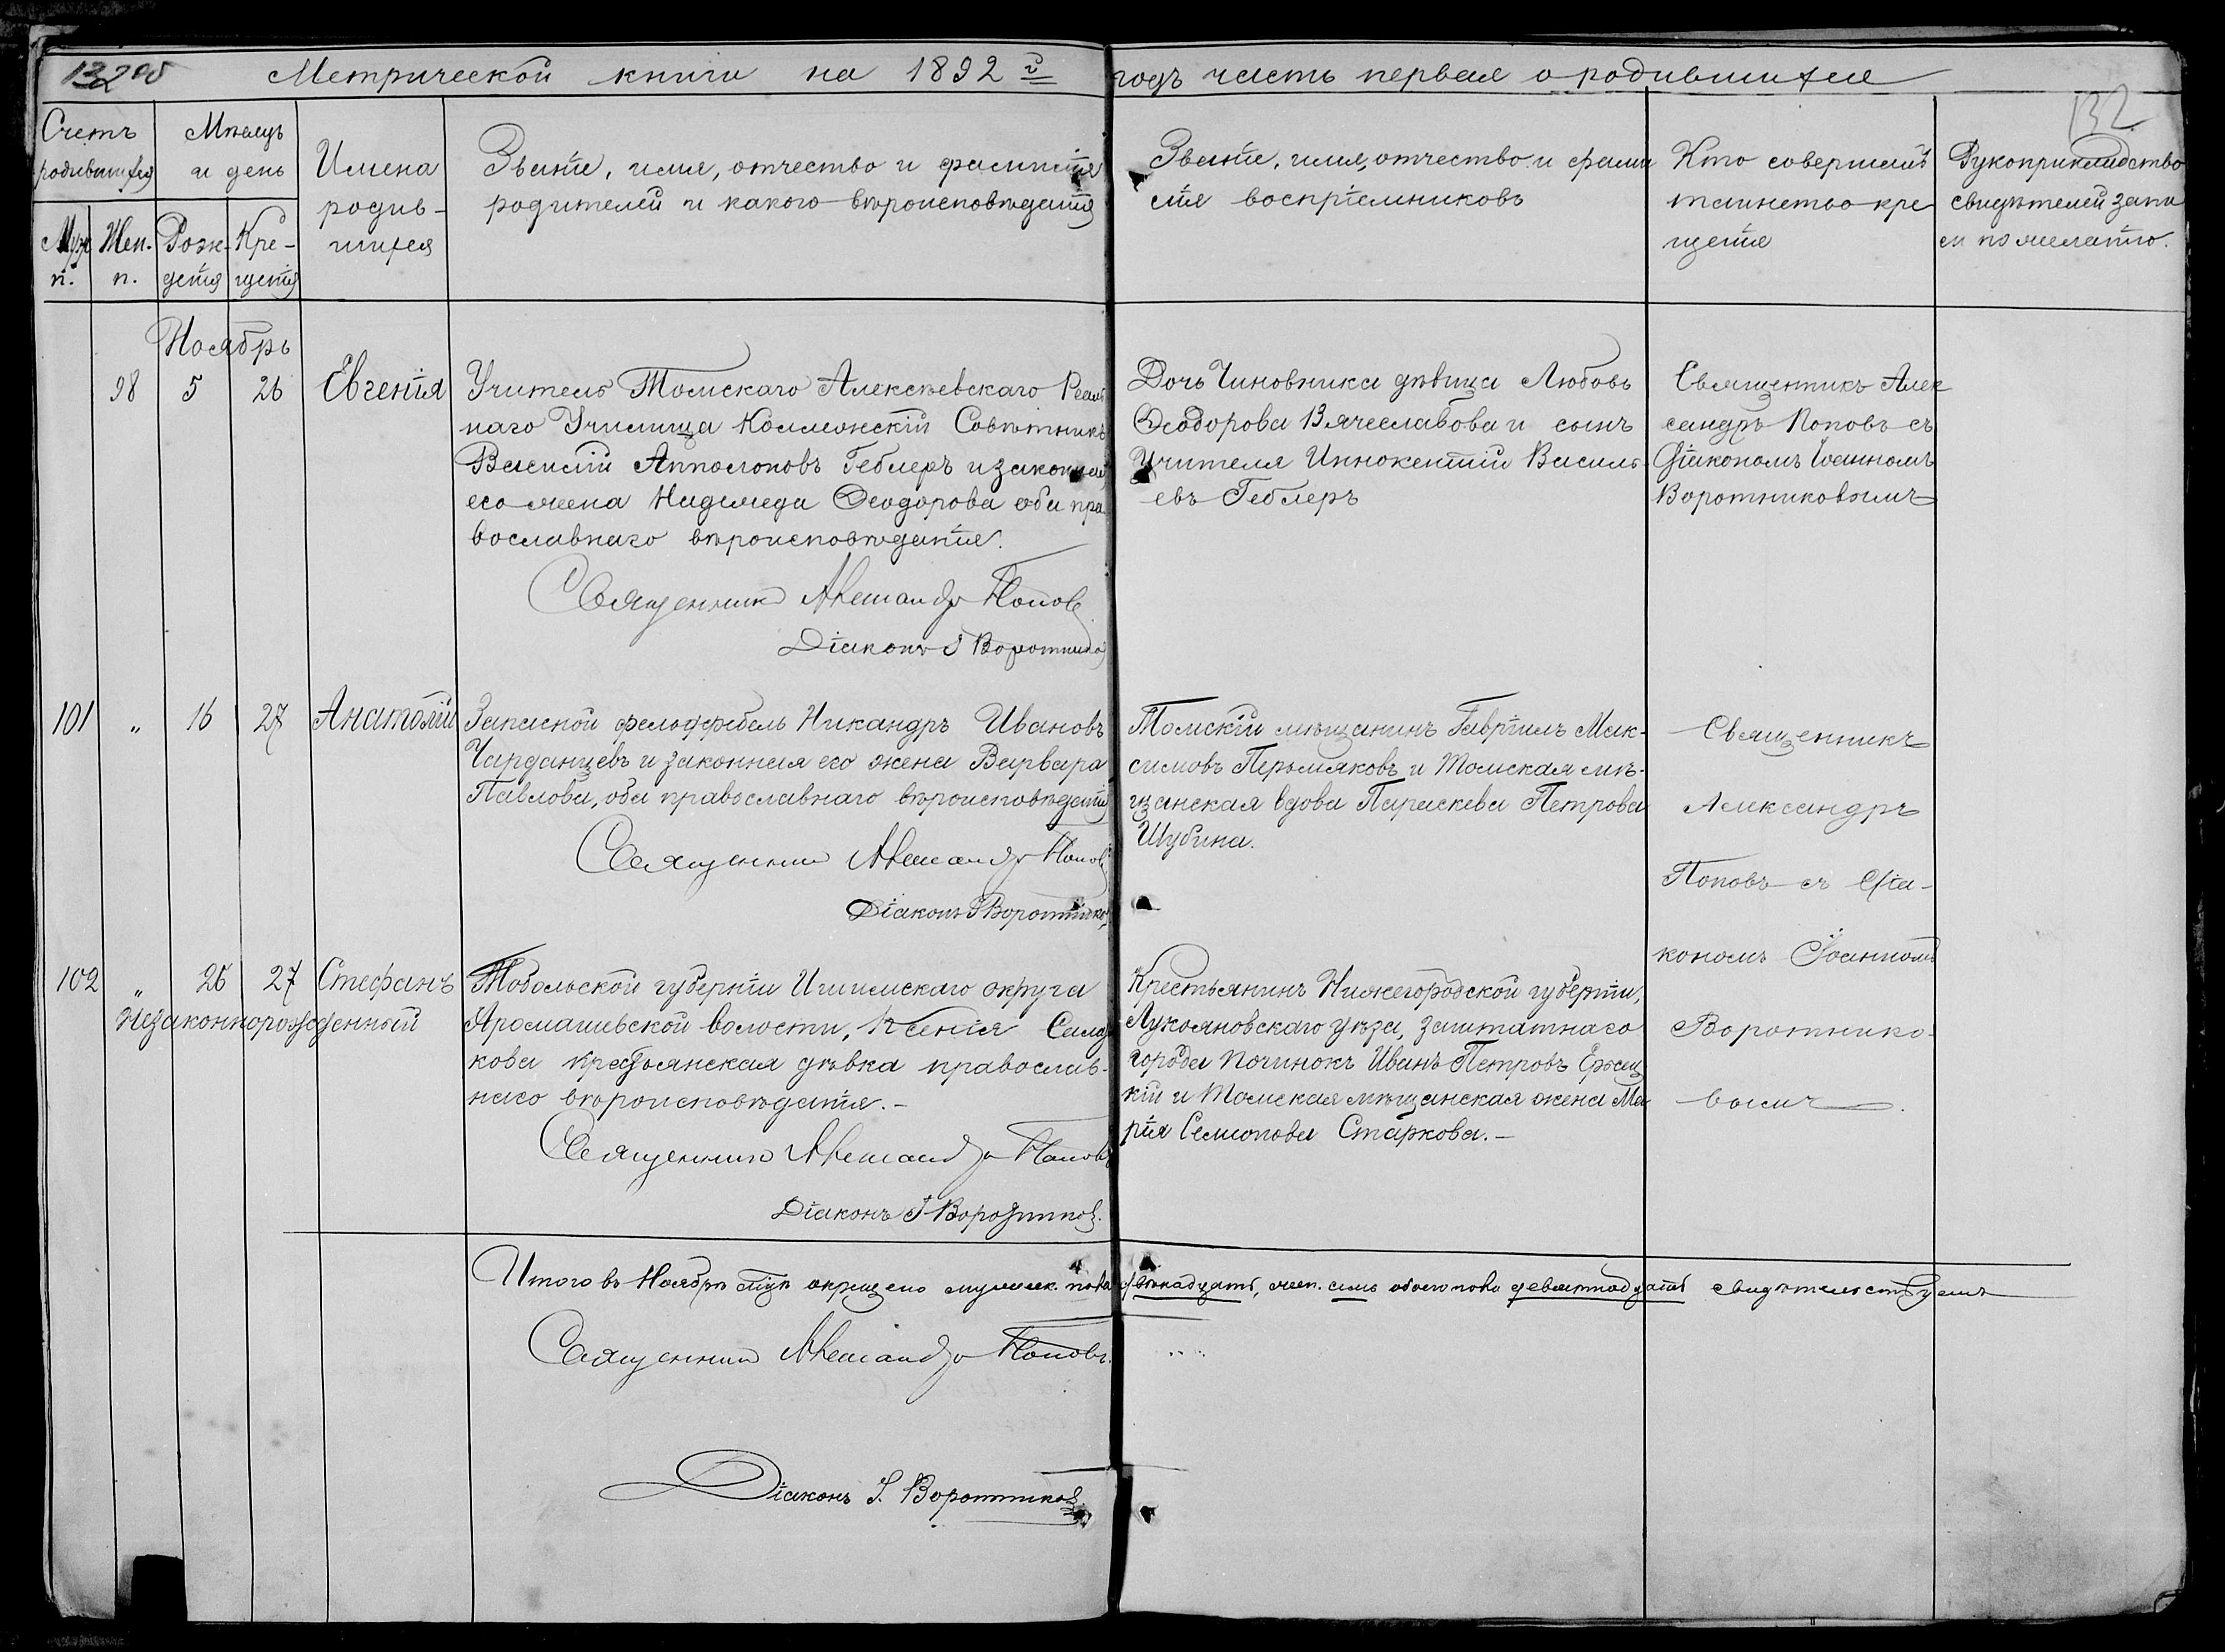 132 об
132
Метрической книги на 1892 й годъ часть первая о родившихся
Счетъ родившихся
Муж. п.
Жен. п.
Мѣсяцъ и день
Рож-
денія
Кре-
щенія
Имена
родив-
шихся
Званіе, имя, отчество и фамилія
родителей и какого вѣроисповѣданія
Званіе, имя, отчество и фами
лія воспріемниковъ
Кто совершалъ
таинство кре
щенія
Рукоприкладство
свидѣтелей запи
си по желанію.
Ноябрь
98 5 26 Евгенія
Учитель Томскаго Алексѣевскаго Реаль
наго Училища Коллежскій Совѣтникъ
Василій Апполоновъ Геблеръ и законная
его жена Надежда Ѳеодорова оба пра
вославнаго вѣроисповѣданія.
Священникъ Александръ Поповъ
Діаконъ І Воротников
Дочь Чиновника дѣвица Любовь
Ѳеодорова Вячеславова и сынъ
Учителя Иннокентій Василь
евъ Геблеръ
Священникъ Алек
сандръ Поповъ съ
Діакономъ Іоанномъ
Воротниковымъ
101 " 16 27 Анатолій
Запасной фельдфебель Никандръ Ивановъ
Чарданцевъ и законная его жена Варвара
Павлова, оба православнаго вѣроисповѣданія
Священникъ Александръ Поповъ
Діаконъ І Воротников
Томскій мѣщанинъ Гавріилъ Мак-
симовъ Перьмяковъ и Томская мѣ-
щанская вдова Параскева Петрова
Шубина.
Священникъ
Александръ
Поповъ съ Діа-
кономъ Іоанномъ
Воротнико-
вымъ
102 " 26 27 Стефанъ
Незаконнорожденный
Тобольской губерніи Ишимскаго округа
Аромашевской волости, Ксенія Сала
кова крестьянская дѣвка православ-
наго вѣроисповѣданія. -
Священникъ Александръ Поповъ
Діаконъ І Воротников.
Крестьянинъ Нижегородской губерніи,
Лукояновскаго уѣзда, заштатнаго
города Починокъ Иванъ Петровъ
кій и Томская мѣщанская жена Ма
рія Семіонова Старкова. -
Итого въ Ноябрѣ м-цѣ окрещено мужеск. пола двѣнадцать, жен. семь обоего пола девятнадцать свидѣтельствуемъ
Священникъ Александръ Поповъ.
Діаконъ І. Воротников